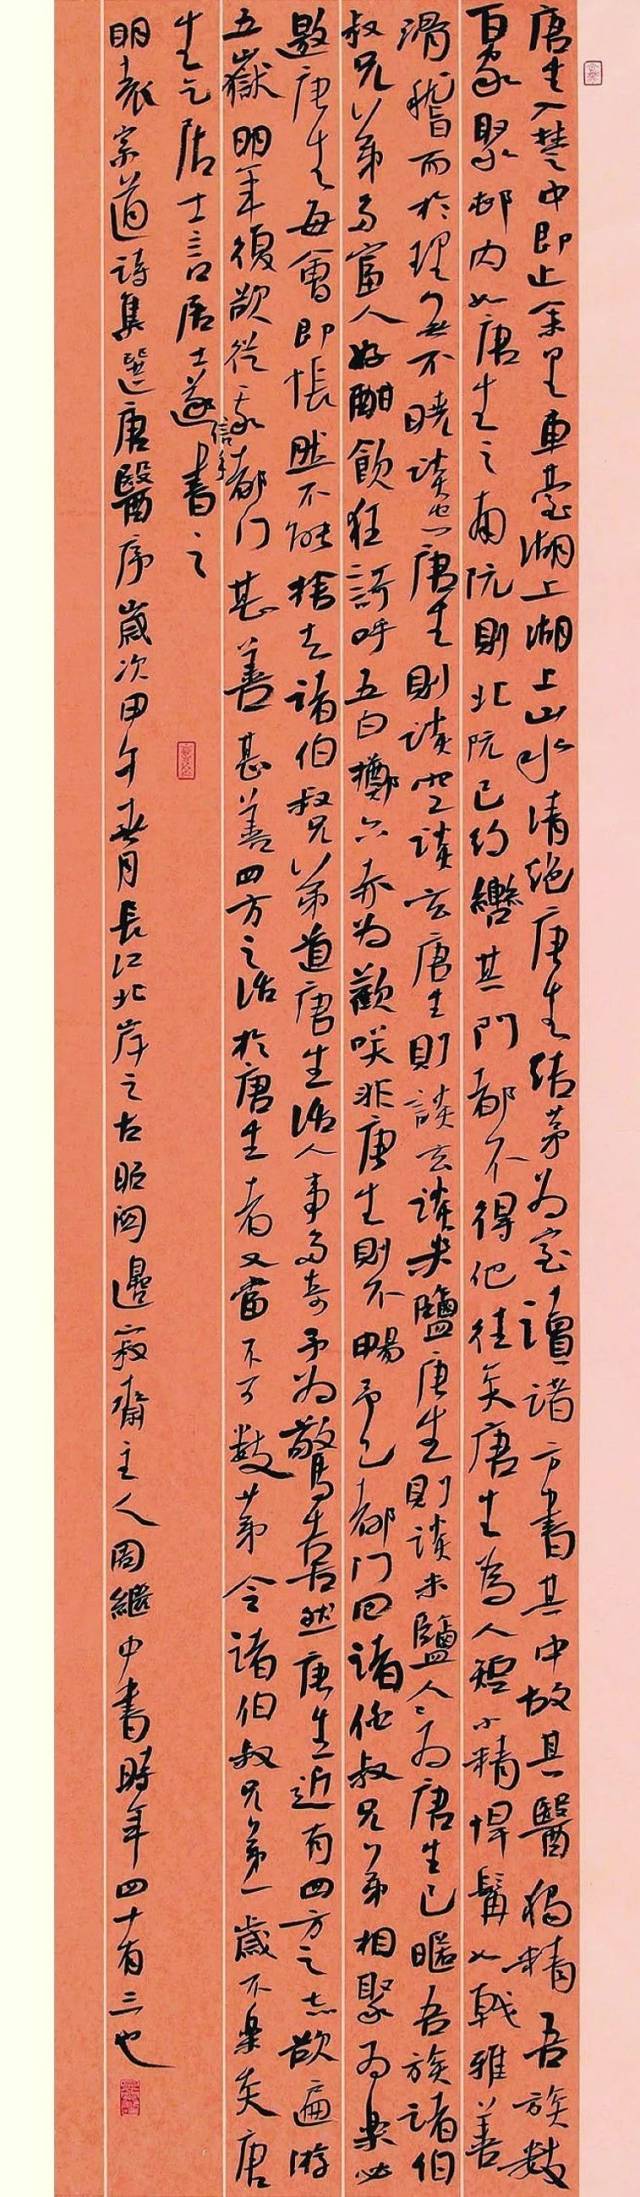 唐生入楚中即止余里車臺湖上湖上山水清絕唐生結茅為室讀諸方書其中故其醫獨精吾族數
百家聚邨內如唐生之南阮則北阮已約轡其門都不得他往矣唐生為人短小精悍髯如戟雅善
滑稽而於理無不曉談空唐生則談空談玄唐生則談玄談米鹽唐生則談米鹽人人為唐生已暱吾族諸伯
叔兄弟多富人好酣飲狂謌呼五白擲六赤為歡咲非唐生則不暢予已都門回諸伯叔兄弟相聚為樂必
邀唐生每會即悵然不能捨去諸伯叔兄弟道唐生治人事多奇予為驚喜居然唐生近有四方之志欲遍游
五嶽明年復欲從我都门甚善甚善四方之治於唐生者又當不可數第令諸伯叔兄弟一歲不樂矣唐
信手
生乞居士言居士遂書之
明袁宗道詩集選唐醫序歲次甲午春月長江北岸之古昭関邊寂齋主人周繼中書時年四十有三也